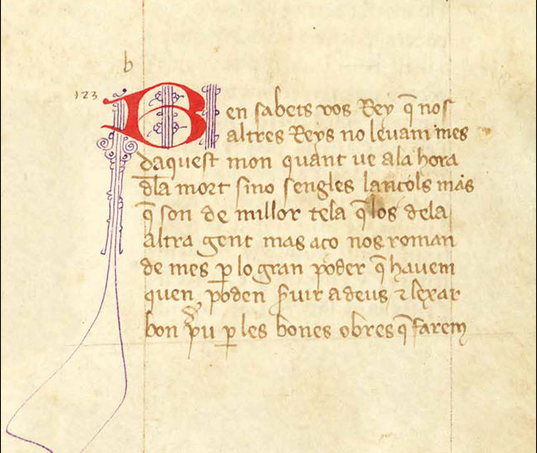 b
123
Ben sabets vos Rey q̃ nos
altres Reys no leuam mes
daquest mon quant ue ala hora
d̃la mort sino sengles lançols mas
q̃ son de millor tela q̃ los dela
altra gent mas aço nos roman
de mes ꝑ lo gran poder q̃ hauem
quen poden s̃uir a deus ⁊ lexar
bon pᵉu ꝑ les bones obres q̃ farem